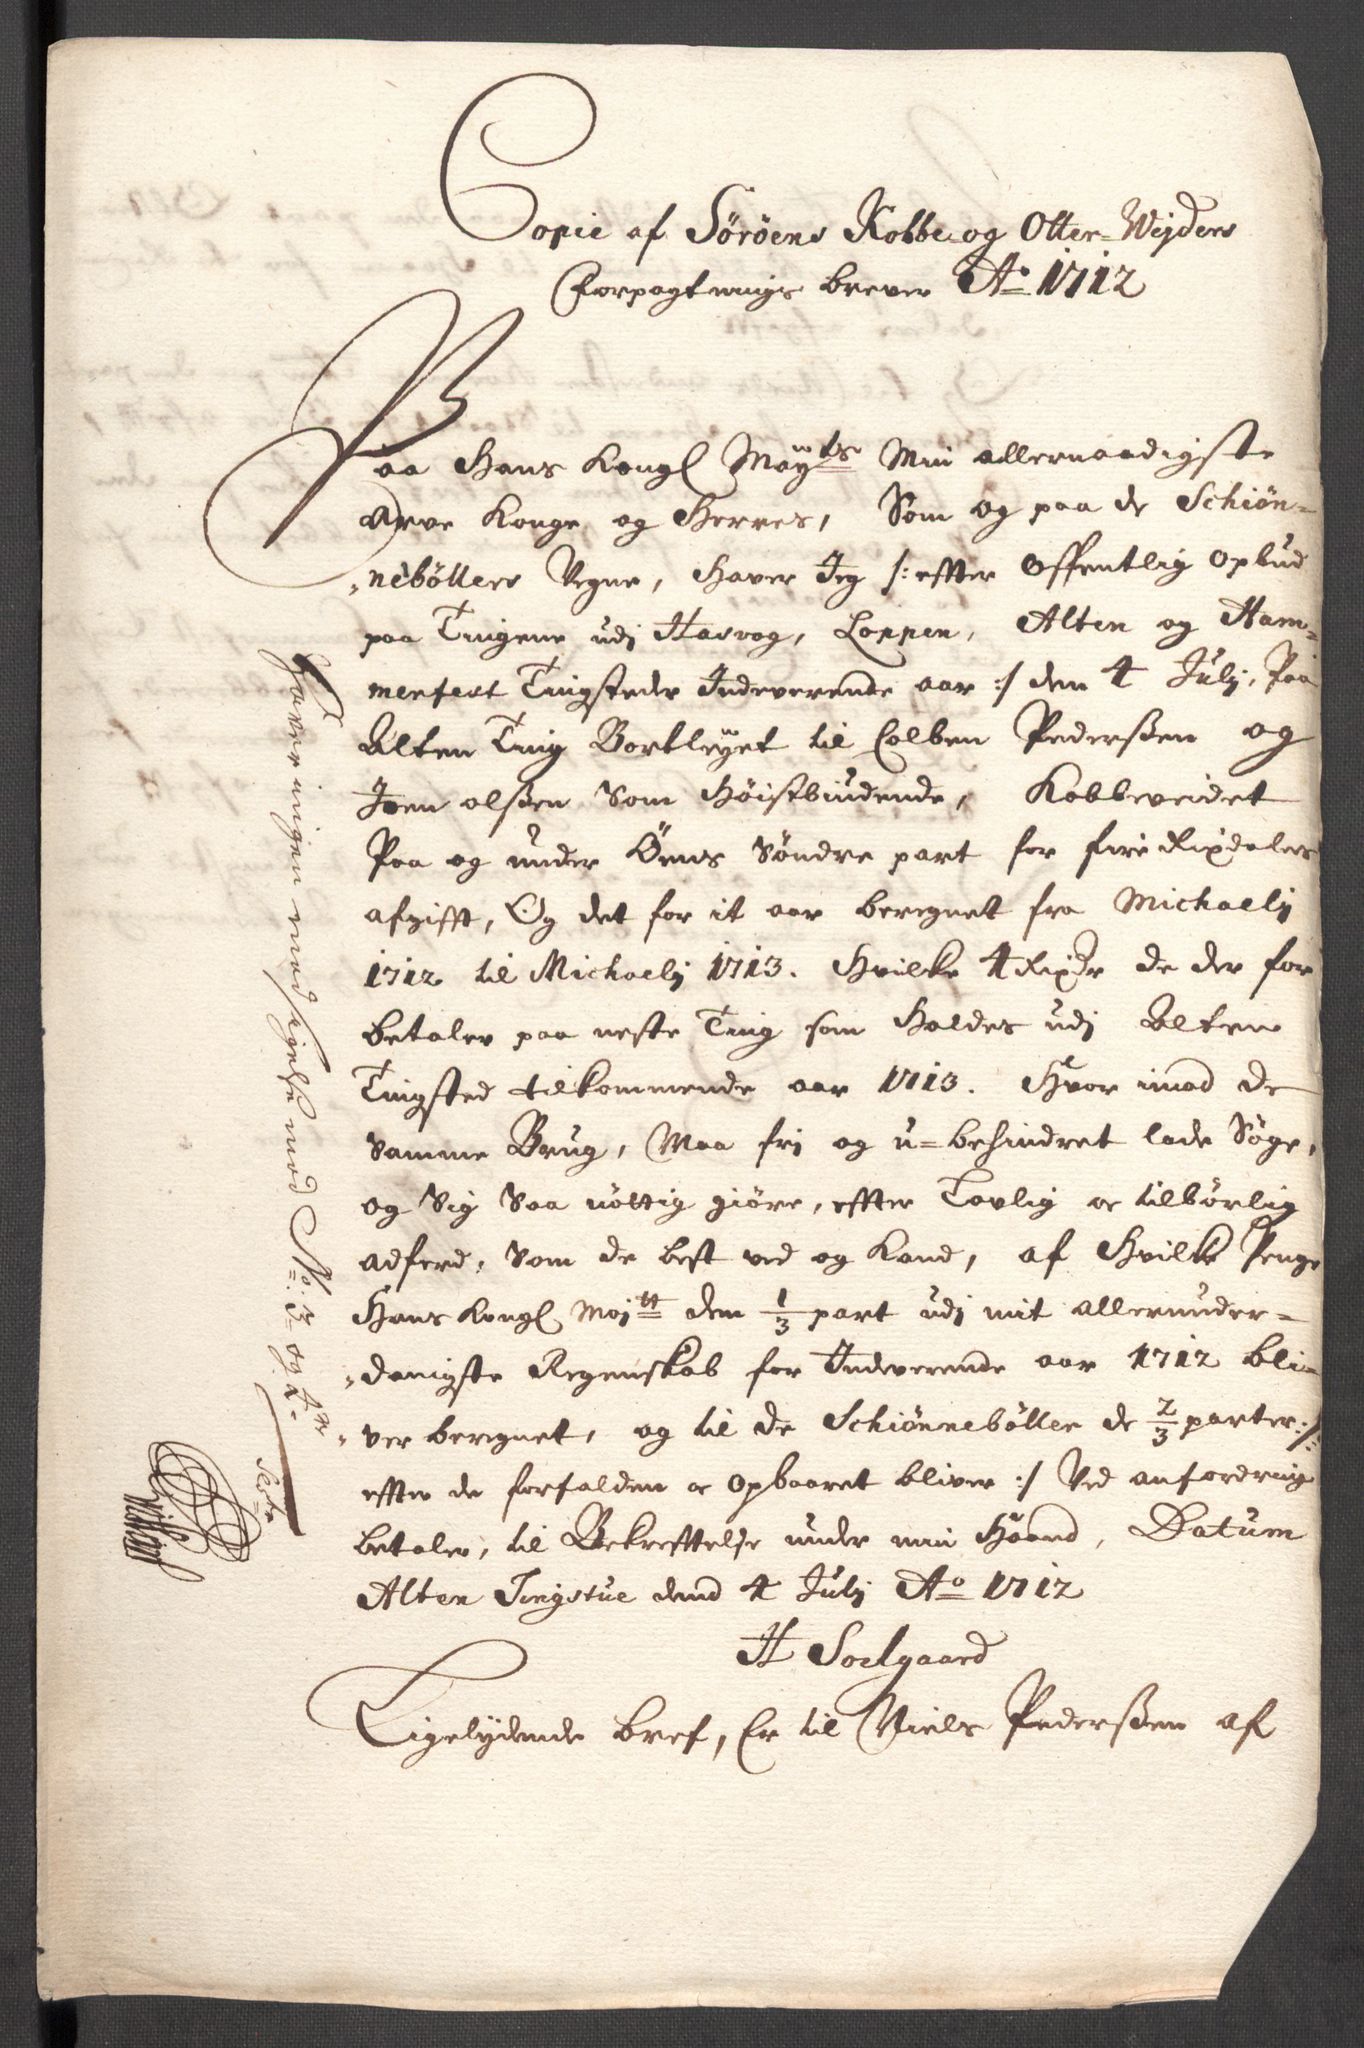 Copie af Söröens Kobbe og Otter-Wejders
Forpagtnings brever Ao 1712
Paa Hans Kongl Mayts Min allernaadigste
Arve Konge og Herres, Som og paa de Schiön-
neböllers Vegne, Haver Jeg /: effter Offentlig Opbud
paa Tingene udj Hasvog, Loppen, Alten og Ham-
merfest Tingsteder Indeverende aar :/ den 4 Julj, Paa
Alten Ting Bortleyet til Colben Pederßen og
Joen olßen Som Höistbiudende, Kobbeveidet
Paa og under Öens Söndre part for fire Rixdalers
afgifft, Og det for it aar beregnet fra Michaelj
1712 til Michaelj 1713. Hvilke 4 Rixdr de der for
betaler paa neste Ting som Holdes udj Alten
Tingsted tilkommende aar 1713. Hvor imod de
Samme Brug, Maa frj og u-behindret lade Söge,
og Sig Saa nöttig giöre, effter Lovlig oc tilbörlig
adferd, Som de best ved og Kand, af Hvilke Penge
Hans Kongl Majtt den 1/3 part udj mit allerunder-
danigste Regenskab for Indeverende aar 1712 bli-
ver beregnet, og til de Schiönnebölle de 2/3 parter /:
effter de forfalden oc Opbaaret bliver :/ Ved anfordring
betaler, til Bekrefftelse under min Haand, Datum
Alten Tingstue dend 4 Julj Ao 1712
H Soelgaard
Ligelydende bref, Er til Niels Pederßen af
Haver ingen modsigelse mod No: 3 og 4de